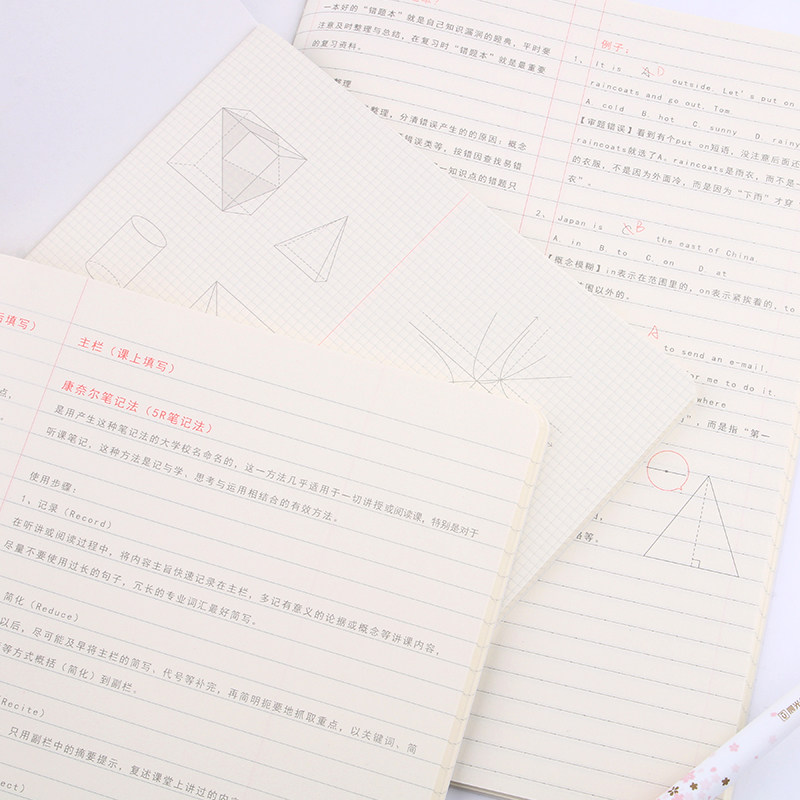 一本好的“错题本”就是自己知识漏洞的题典，平时要
注意及时整理与总结，在复习时“错题本”就是最重要
的复习资料。
整理
整理，分清错误产生的的原因：概念
错误类等，按错因查找易错
一知识点的错题只
例子：
1、It is A D outside. Let's put on
raincoats and go out, Tom.
A. cold B. hot C. sunny D. rainy
【审题错误】看到有个put on短语，没注意后面还
raincoats就选了A. raincoats是雨衣，而不是一
的衣服，不是因为外面冷，而是因为“下雨”才穿“
衣”。
2、Japan is C B the east of China.
A. in B. to C. on D. at
【概念模糊】in表示在范围里的，on表示紧挨着的，to
范围以外的。
A
to send an e-mail.
for me to do it.
where
”，而是指“第一
等。
后填写）
主栏（课上填写）
康奈尔笔记法（5R笔记法）
是用产生这种笔记法的大学校名命名的，这一方法几乎适用于一切讲授或阅读课，特别是对于
听课笔记，这种方法是记与学、思考与运用相结合的有效方法。
使用步骤：
1、记录（Record）
在听讲或阅读过程中，将内容主旨快速记录在主栏，多记有意义的论据或概念等讲课内容，
尽量不要使用过长的句子，冗长的专业词汇最好简写。
简化（Reduce）
以后，尽可能及早将主栏的简写、代号等补充，再简明扼要地抓取重点，以关键词、简
等方式概括（简化）到副栏。
Recite）
只用副栏中的摘要提示，复述课堂上讲过的内
ect）
点，